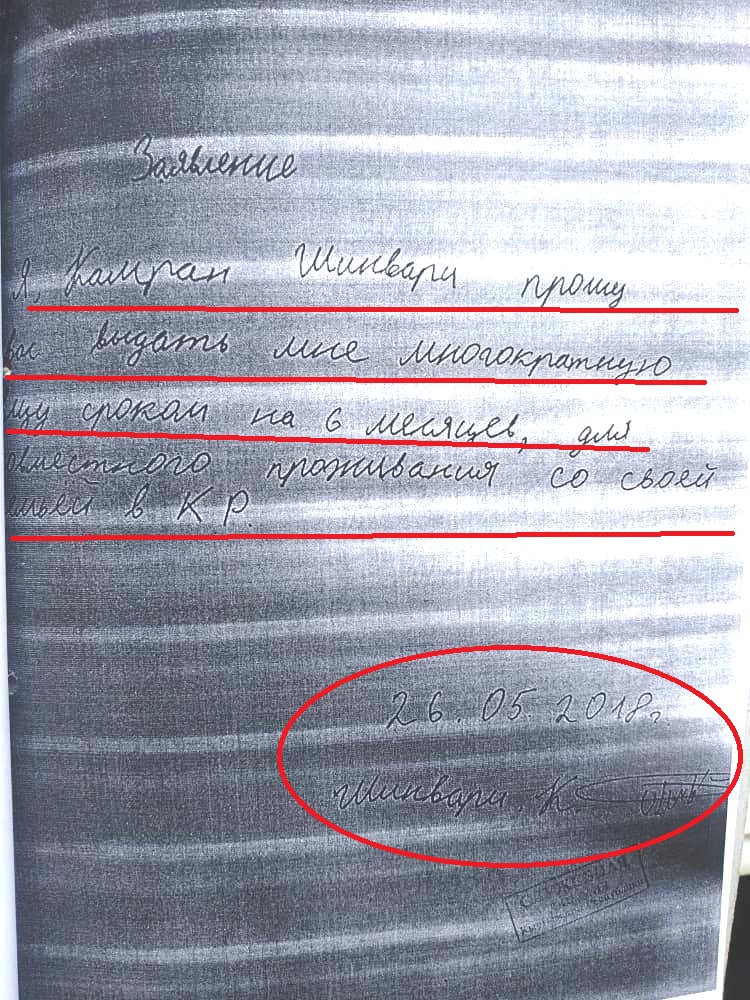 Заявление
Я, Камран Шинвари прошу
вас выдать мне многократную
изу сроком на 6 месяцев, для
овместного проживания со своей
мьей в КР.
26.05.2018г.
Шинвари. К